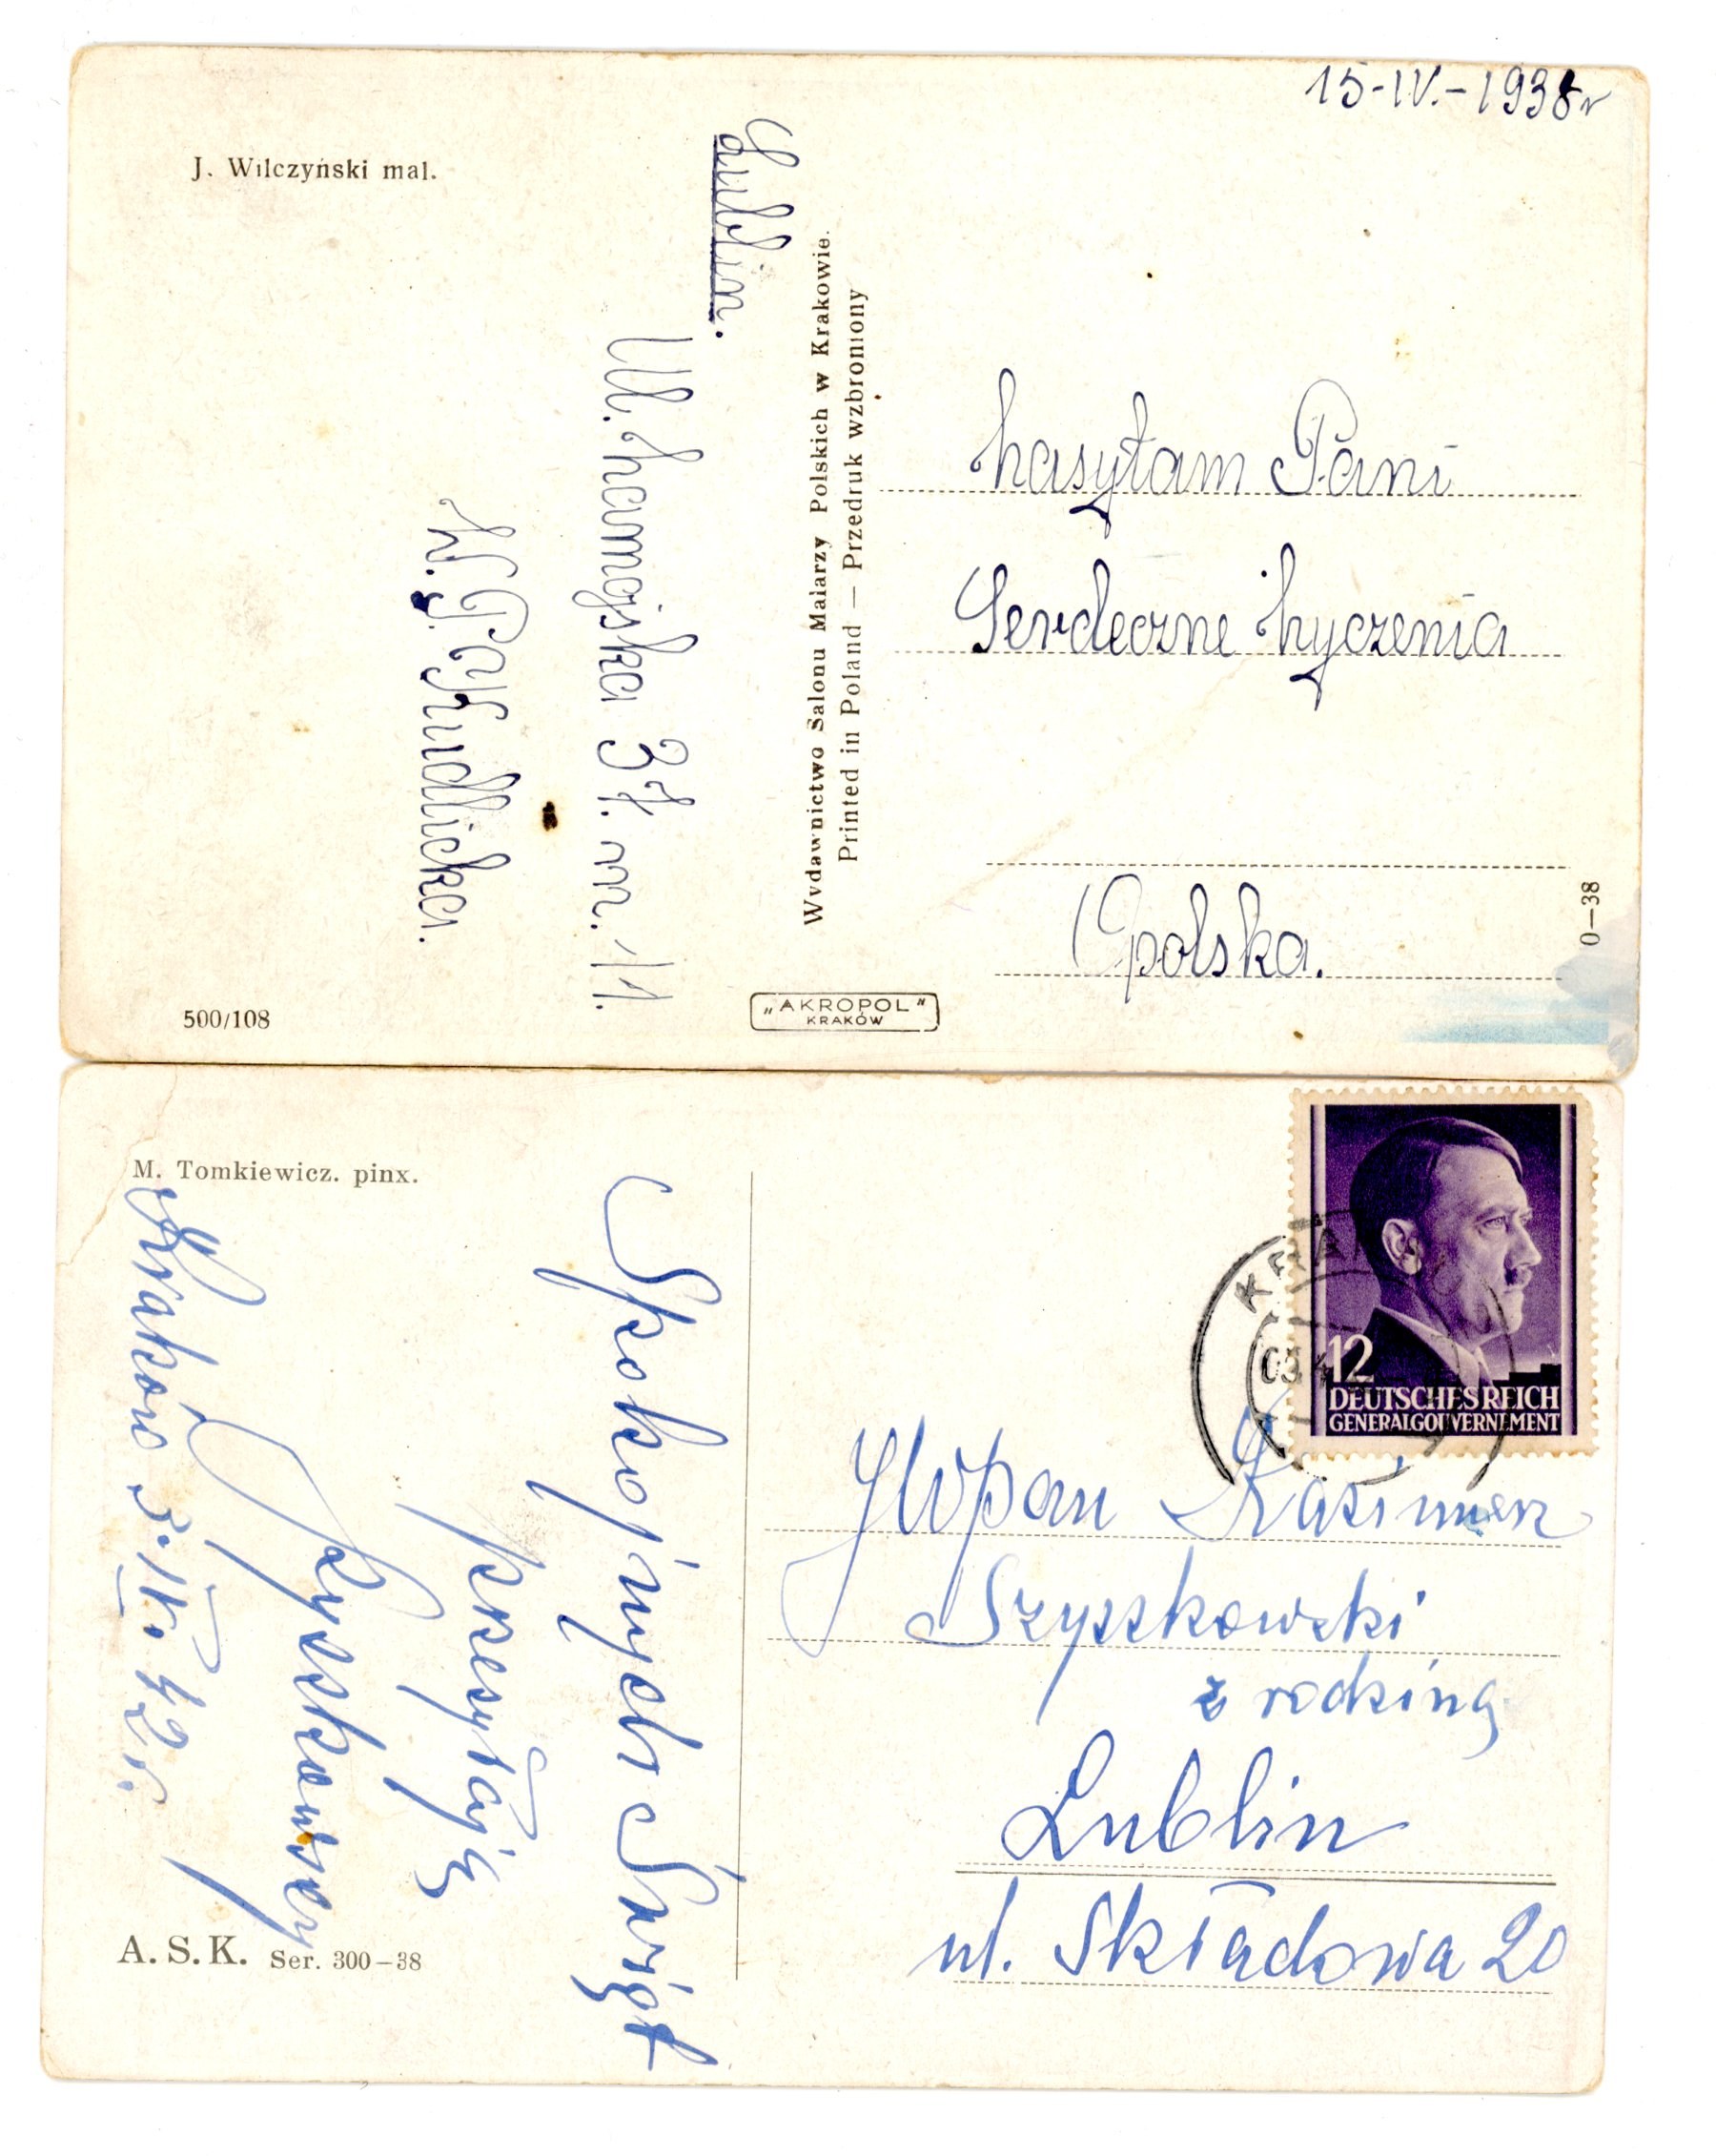 15-IV.-1938r
J. Wilczyński mal.
Lublin.
Ul. Zamojska 37. m. 11.
W. P. Kudlicka.
Wydawnictwo Salonu Malarzy Polskich w Krakowie.
Printed in Poland — Przedruk wzbroniony
Zasyłam Pani
Serdeczne Życzenia
Opolska.
0—38
500/108
„AKROPOL"
KRAKÓW
M. Tomkiewicz. pinx.
Spokojnych Świąt
przesyłają
Szyszkowscy
Kraków 3.IV. 42 r.
A. S. K. Ser. 300–38
12
DEUTSCHES REICH
GENERALGOUVERNEMENT
JWPan Kazimierz
Szyszkowski
z rodziną
Lublin
ul. Składowa 20